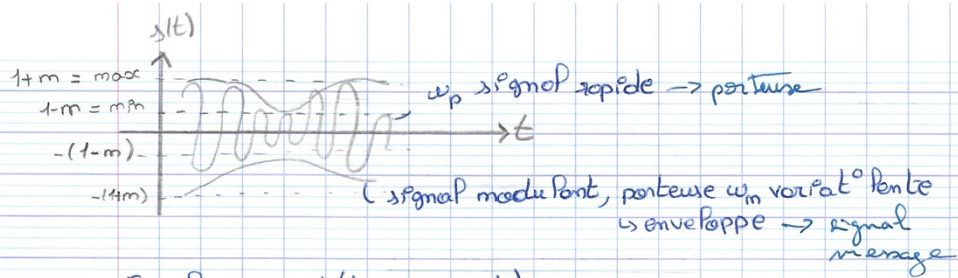 s(t)
1+m = max
1-m = min
ωp signal rapide → porteuse
t
-(1-m)
-(1+m)
( signal modulant, porteuse ωm variat° lente
↳ enveloppe → signal
message